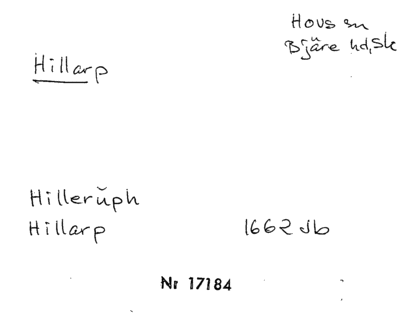 Hovs sn
Bjäre hd, Sk
Hillarp
Hillerŭph
Hillarp 1662 Jb
Nr 17184